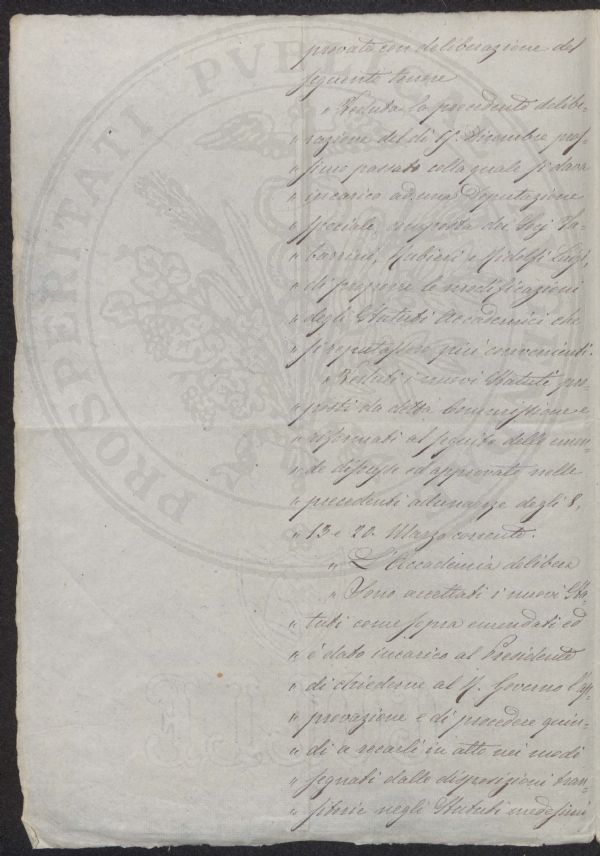 provato con deliberazione del
seguente tenore
" Veduta la precedente delibe-
" razione del dì 17. Dicembre pros-
" simo passato colla quale si dava
" incarico ad una Deputazione
" speciale composta dei Sigi Ta-
" barrini, Rubieri e Ridolfi Luigi,
" di proporre le modificazioni
" degli Statuti Accademici che
" si reputassero più convenienti.
" Veduti i nuovi Statuti pro-
" posti da detta Commissione e
" riformati al seguito delle emen-
" de discusse ed approvate nelle
" precedenti adunanze degli 8,
" 13 e 20. Marzo corrente.
" L'Accademia delibera
" Sono accettati i nuovi Sta-
" tuti come sopra emendati ed
" è dato incarico al Presidente
" di chiederne al R. Governo l'ap-
" provazione e di procedere quin-
" di a recarli in atto nei modi
" segnati dalle disposizioni tran-
" sitorie negli Statuti medesimi
PROSPERITATI PVBLICAE